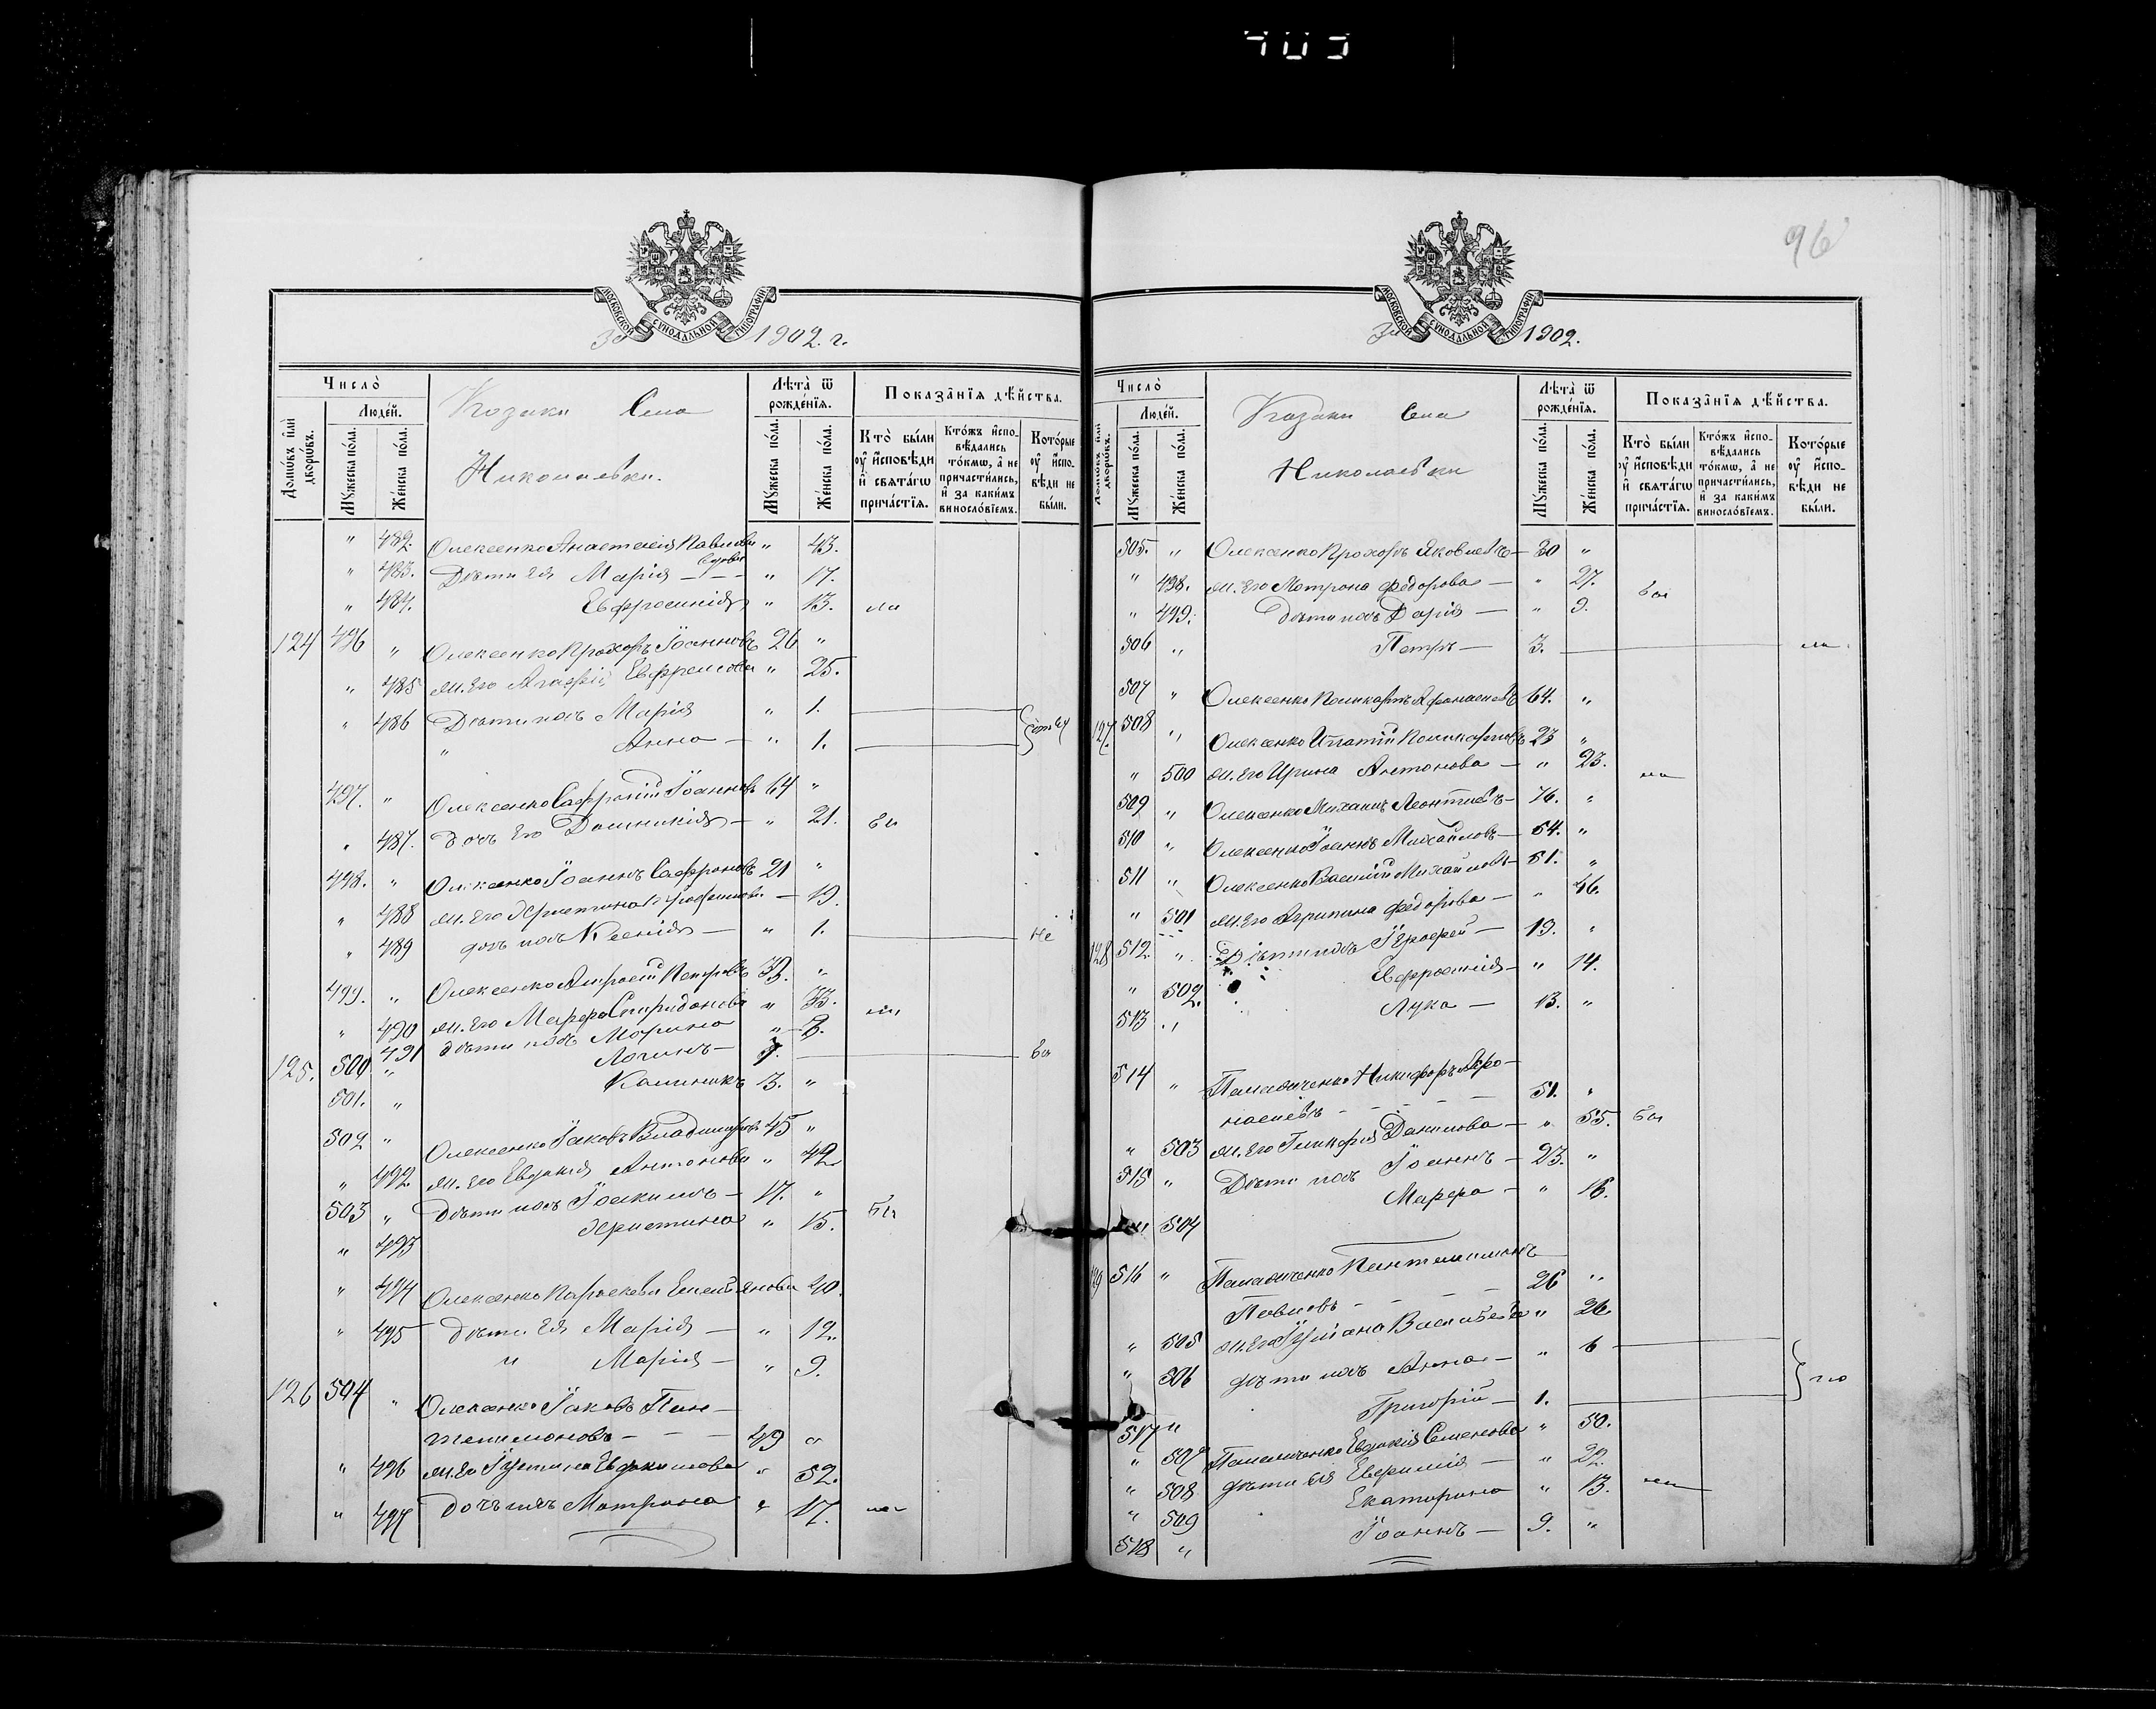 96
МОСКОВСКОЙ СѴНОДАЛЬНОЙ ТИПОГРАФІИ
За 1902. г.
Число̀
Людей.
Домѡвъ и҆лѝ дворѡвъ.
Мꙋжеска по́ла.
Же́нска по́ла.
Козаки Села
Николаевки.
Лѣта̀ ѿ рожде́нїѧ.
Мꙋжеска по́ла.
Же́нска по́ла.
Показа̂нїѧ дѣ́йства.
Кто̀ бы́ли оу҆ и҆́сповѣди и҆ свѧта́гѡ прича́стїѧ.
Кто́жъ и҆спо-вѣ́дались то́кмѡ, а҆ не причасти́лись, и҆ за каки́мъ виносло́вїемъ.
Кото́рые оу҆ и҆спо-вѣди не бы́ли.
" 482. Олексенко Анастасія Павлова " 43.
вдова
" 483. Дѣти ея Марія - - - " 17.
" 484. Евфросинія " 13.
124 496 " Олексенко Прохоръ Іоанновъ 26 "
" 485 ж. его Агафія Евфремова " 25.
" 486 Дѣти ихъ Марія " 1.
" Анна — " 1.
497. " Олексенко Сафроній Іоанновъ 64 "
" 487. дочь его Домникія — " 21.
498. " Олексенко Іоаннъ Сафроновъ 21 "
" 488 ж. его Христина — 19.
" 489 дочь ихъ Ксенія — " 1. Не
499. " Олексенко Амвросій Петровъ 33. "
" 490 ж. его Марфа Спиридонова " 33.
" 491 дѣти ихъ Марина " 8.
125. 500 " Логинъ —
501. " Калиникъ 3. "
502 " Олексенко Іаковъ Владиміровъ 45 "
" 492 ж. его Евдокія Антонова " 42
503 " Дѣти ихъ Іоакимъ — 17. "
" 493 Христина " 15.
" 494 Олексенко Параскева Емельянова 40.
" 495 дѣти ея Марія — " 12.
" Марія — " 9.
126 504 " Олексенко Іаковъ Пан-
телимоновъ - - - 49 "
" 496 ж. его Іустина Евфимова " 52.
" 497 дочь ихъ Матрона " 17.
МОСКОВСКОЙ СѴНОДАЛЬНОЙ ТИПОГРАФІИ
За 1902.
Число̀
Людей.
Домѡвъ и҆лѝ дворѡвъ.
Мꙋжеска по́ла.
Же́нска по́ла.
Козаки Села
Николаевки
Лѣта̀ ѿ рожде́нїѧ.
Мꙋжеска по́ла.
Же́нска по́ла.
Показа̂нїѧ дѣ́йства.
Кто̀ бы́ли оу҆ и҆́сповѣди и҆ свѧта́гѡ прича́стїѧ.
Кто́жъ и҆спо-вѣ́дались то́кмѡ, а҆ не причасти́лись, и҆ за каки́мъ виносло́вїемъ.
Кото́рые оу҆ и҆спо-вѣди не бы́ли.
505. " Олексенко Прохоръ Яковлевъ — 30 "
" 498. ж. его Матрона Федорова — " 27.
" 499. Дѣти ихъ Дарія — " 9.
506 " Петръ — 3.
507 " Олексенко Поликарпъ Афанасіевъ 64. "
127. 508 " Олексенко Ипатій Поликарповъ 23 "
" 500 ж. его Ирина Антонова — " 23.
509 " Олексенко Михаилъ Леонтіевъ — 76. "
510 " Олексенко Іоаннъ Михайловъ — 54. "
511 " Олексенко Василій Михайловъ — 51. "
" 501 ж. его Агрипина Федорова — " 46.
128 512. " Дѣти ихъ Іерофей — 19. "
" 502. Евфросинія — " 14.
513 " Лука — 13. "
514 " Паламаренко Никифоръ Афа-
насіевъ - - - - 51. "
" 503 ж. его Гликерія Данилова — " 55.
515 " Дѣти ихъ Іоаннъ — 23. "
504 Марфа — " 16.
516 " Паламаренко Пантелимонъ
Павловъ - - - - 26 "
" 505 ж. его Іуліана Васильева " 26
" 506 дѣти ихъ Анна — " 6
517 " Григорій — 1.
" 507 Паламаренко Евдокія Семенова " 50.
" 508 дѣти ея Евфимія — " 22.
" 509 Екатерина " 13.
518 " Іоаннъ — 9. "